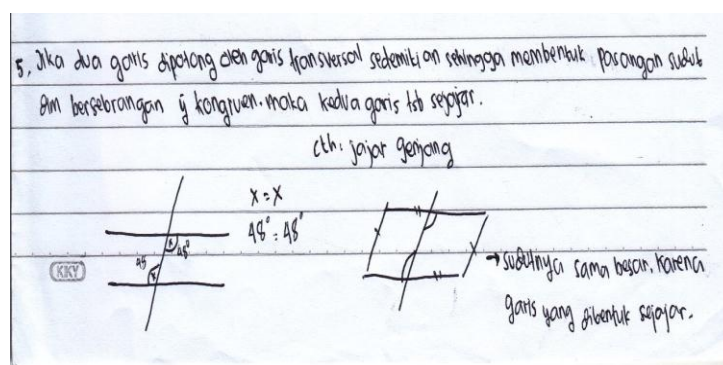 5. Jika dua garis dipotong oleh garis transversal sedemikian sehingga membentuk pasangan sudut
dlm bersebrangan yg kongruen. maka kedua garis tsb sejajar.
cth: jajar genjang
x = x
48° = 48°
x 48°
48 x
KKY
→ sudutnya sama besar, karena
garis yang dibentuk sejajar.